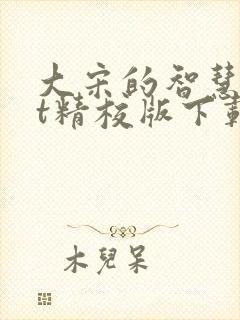 大宋的智慧
t精校版下載
木兒呆